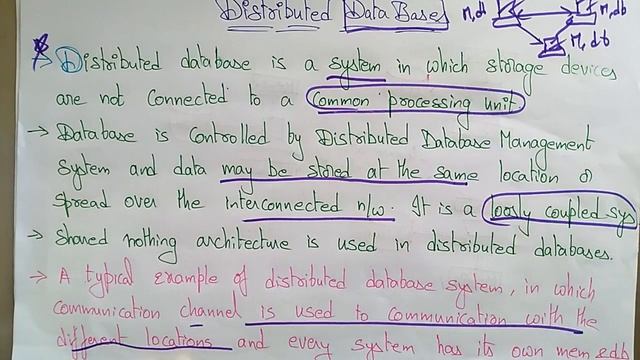 Distributed Data Bases
M, db
M, db
Distributed database is a system in which storage devices
are not connected to a common processing unit
→ Database is controlled by Distributed Database Management
System and data may be stored at the same location or
spread over the interconnected n/w. It is a loosly coupled sys
→ Shared nothing architecture is used in distributed databases.
→ A typical example of distributed database system, in which
communication channel is used to communication with the
different locations and every system has its own mem & db